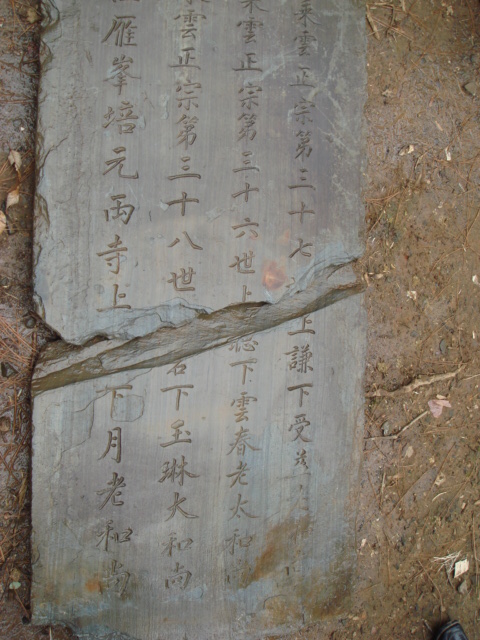 乘雲正宗第三十七世上謙下受茂
乘雲正宗第三十六世上聰下雲春老太和尚
雲正宗第三十八世 下玉琳大和尚
雁峯培元兩寺上 下月老和尚